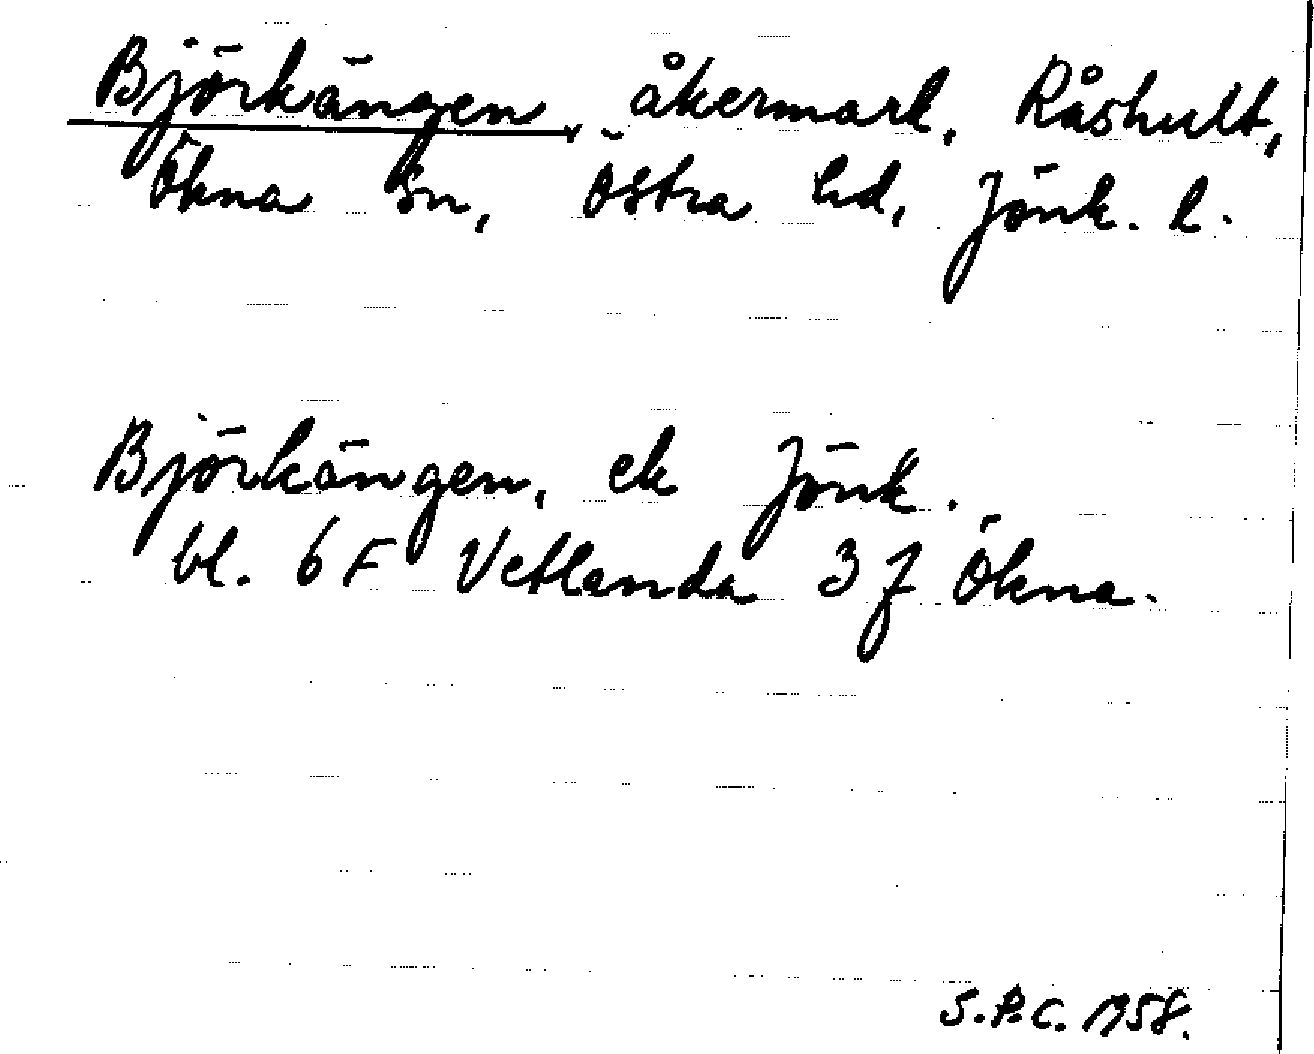 Björkängen, åkermark, Råshult,
Ökna sn, Östra hd, Jönk. l.
Björkängen, ek Jönk.
bl. 6 F Vetlanda 3 j Ökna.
S.P.C. 1958.